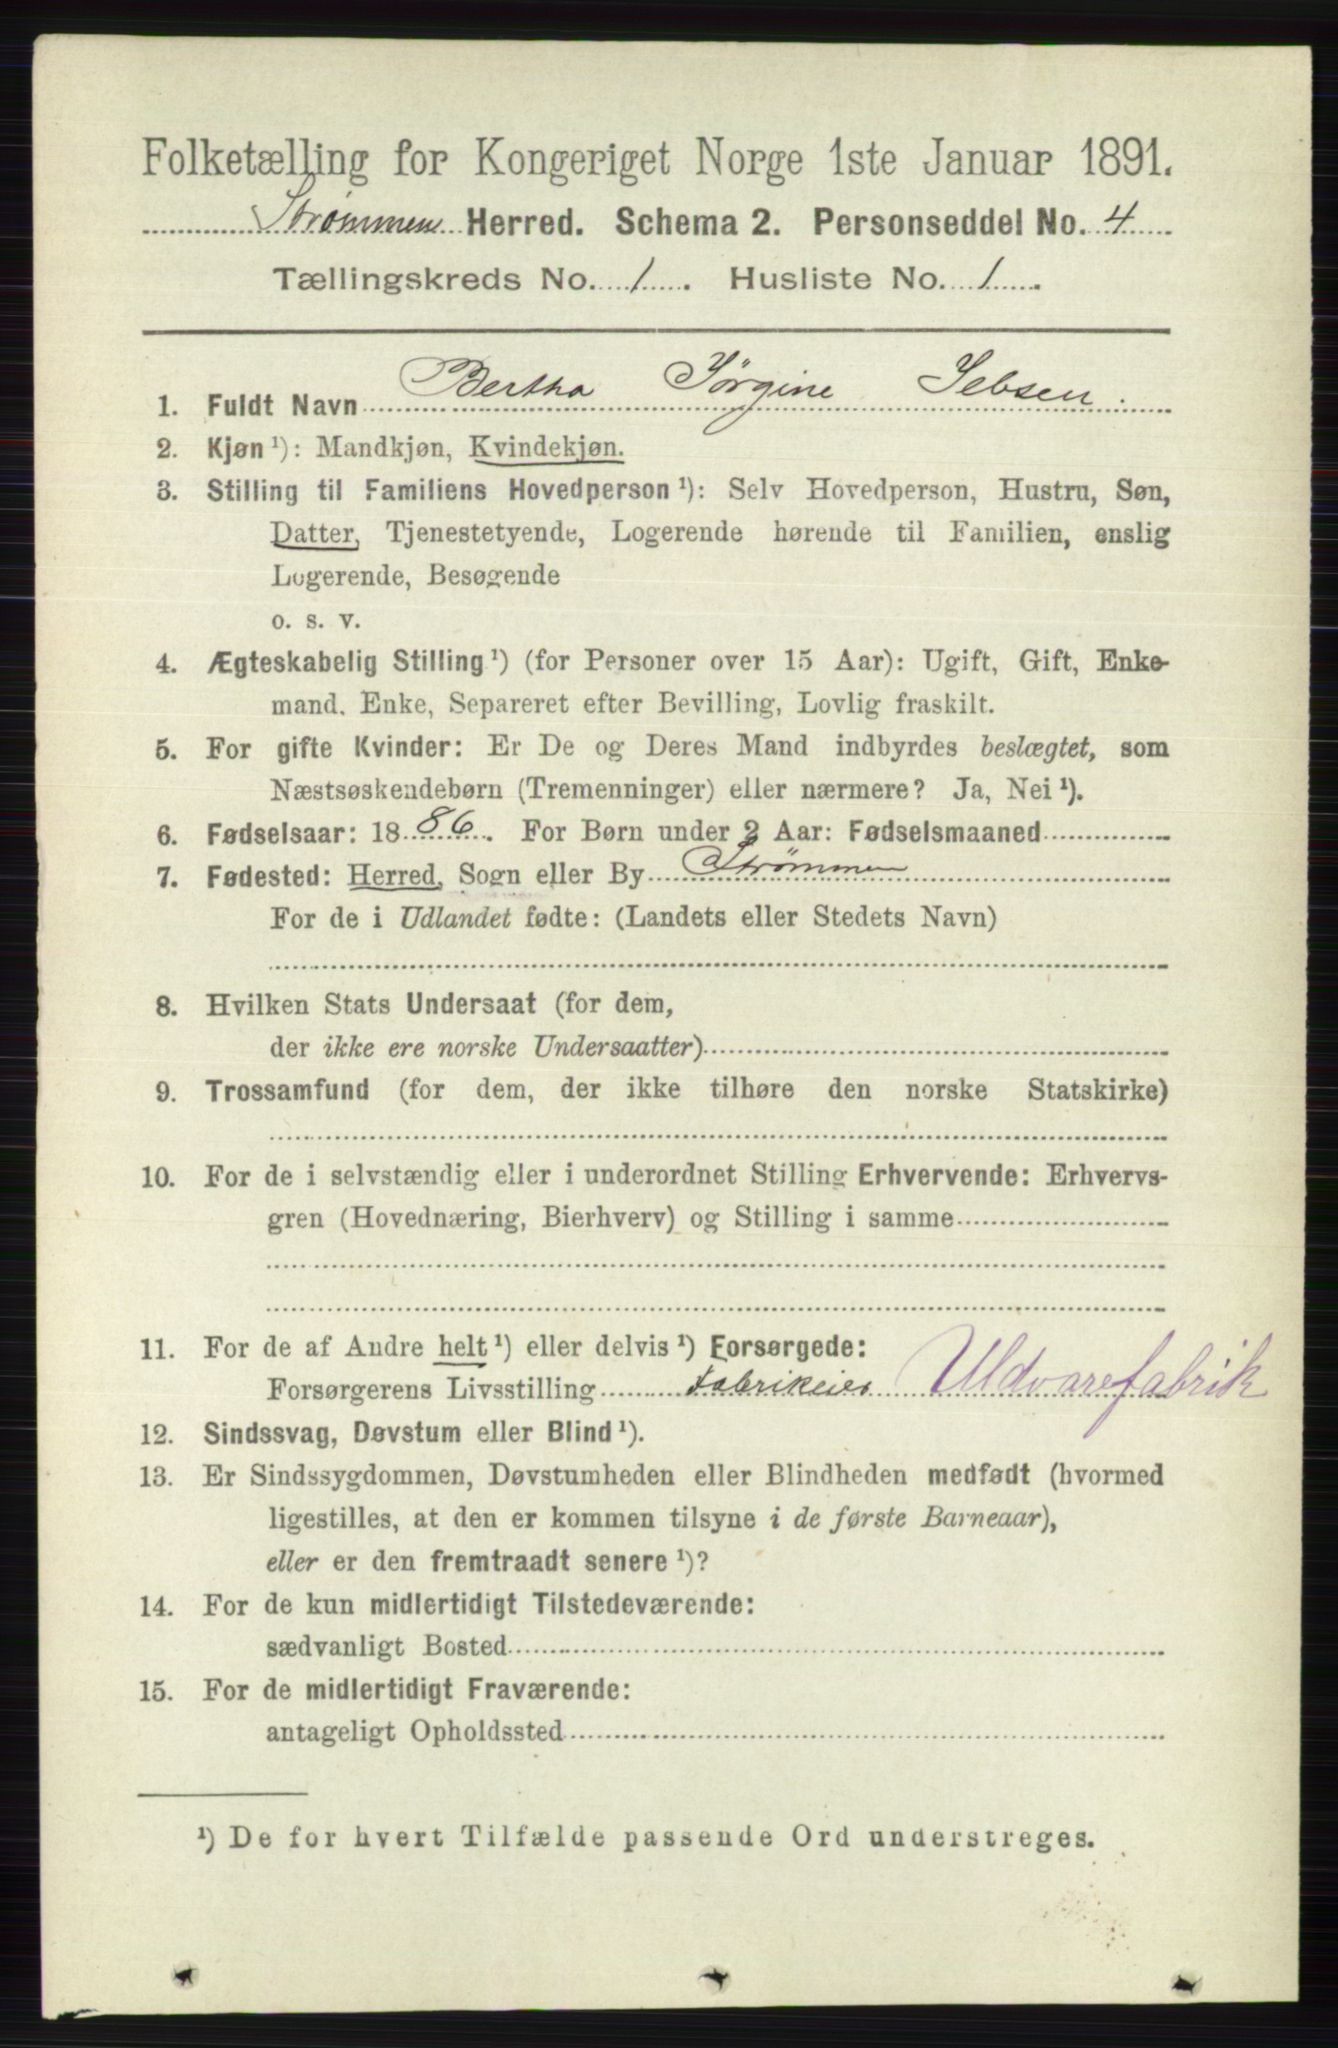 Folketælling for Kongeriget Norge 1ste Januar 1891.
Strømmen Herred. Schema 2. Personseddel No. 4
Tællingskreds No. 1. Husliste No. 1.
1. Fuldt Navn Bertha Jørgine Jebsen.
2. Kjøn ¹): Mandkjøn, Kvindekjøn.
3. Stilling til Familiens Hovedperson ¹): Selv Hovedperson, Hustru, Søn,
Datter, Tjenestetyende, Logerende hørende til Familien, enslig
Logerende, Besøgende
o. s. v.
4. Ægteskabelig Stilling ¹) (for Personer over 15 Aar): Ugift, Gift, Enke-
mand. Enke, Separeret efter Bevilling, Lovlig fraskilt.
5. For gifte Kvinder: Er De og Deres Mand indbyrdes beslægtet, som
Næstsøskendebørn (Tremenninger) eller nærmere? Ja, Nei ¹).
6. Fødselsaar: 1886. For Børn under 2 Aar: Fødselsmaaned
7. Fødested: Herred, Sogn eller By Strømmen
For de i Udlandet fødte: (Landets eller Stedets Navn)
8. Hvilken Stats Undersaat (for dem,
der ikke ere norske Undersaatter)
9. Trossamfund (for dem, der ikke tilhøre den norske Statskirke)
10. For de i selvstændig eller i underordnet Stilling Erhvervende: Erhvervs-
gren (Hovednæring, Bierhverv) og Stilling i samme
11. For de af Andre helt ¹) eller delvis ¹) Forsørgede:
Forsørgerens Livsstilling Fabrikeier Uldvarefabrik
12. Sindssvag, Døvstum eller Blind ¹).
13. Er Sindssygdommen, Døvstumheden eller Blindheden medfødt (hvormed
ligestilles, at den er kommen tilsyne i de første Barneaar),
eller er den fremtraadt senere ¹)?
14. For de kun midlertidigt Tilstedeværende:
sædvanligt Bosted
15. For de midlertidigt Fraværende:
antageligt Opholdssted
¹) De for hvert Tilfælde passende Ord understreges.